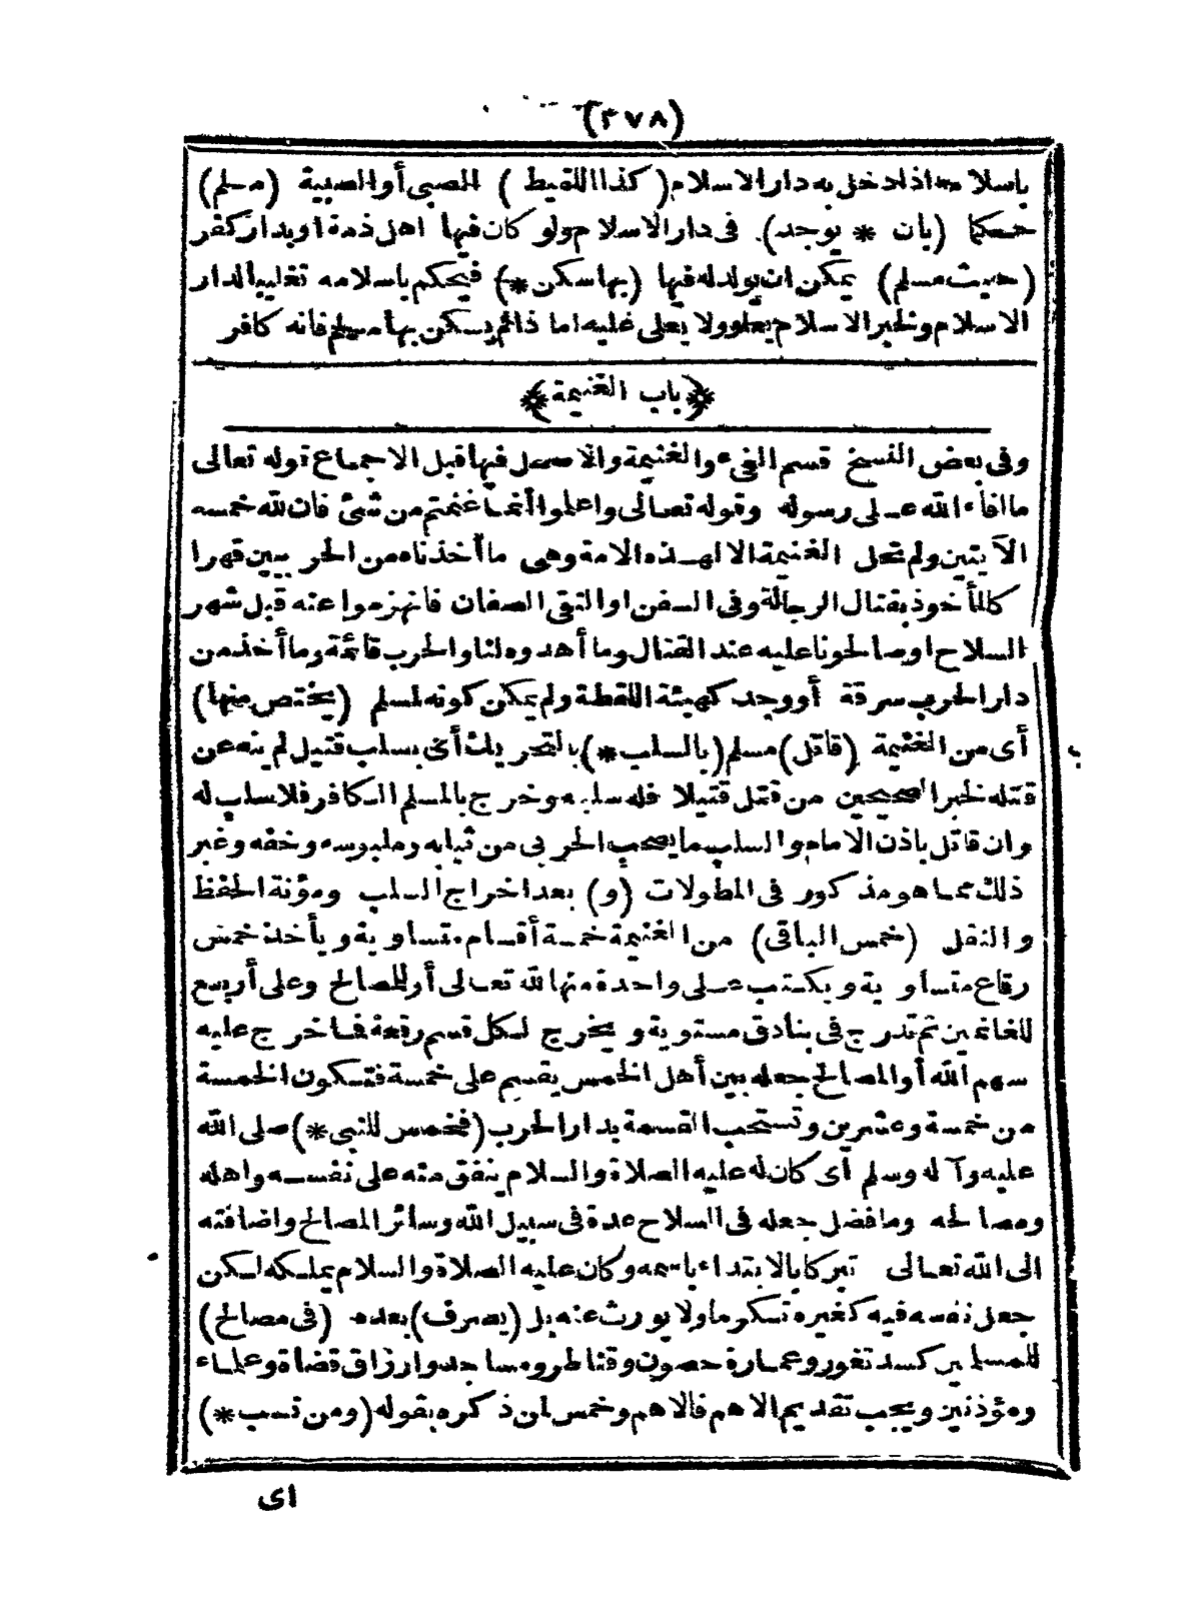 (٣٧٨)
باسلامه اذا دخل به دار الاسلام (كذا اللقيط) الصبى أو الصبية (مسلم)
حكما (بان * يوجد) فى دار الاسلام ولو كان فيها اهل ذمة او بدار كفر
(حيث مسلم) يمكن ان يولد له فيها (بها سكن*) فيحكم باسلامه تغليبا لدار
الاسلام ولخبر الاسلام يعلو ولا يعلى عليه اما ذا لم يسكن بها مسلم فانه كافر
﴿باب الغنيمة﴾
وفى بعض النسخ قسم الفىء والغنيمة والاصل فيها قبل الاجماع قوله تعالى
ما افاء الله على رسوله وقوله تعالى واعلموا أنما غنمتم من شئ فان لله خمسه
الآيتين ولم تحل الغنيمة الا لهذه الامة وهى ما أخذناه من الحربيين قهرا
كالمأخوذ بقتال الرجالة وفى السفن او التقى الصفان فانهزموا عنه قبل شهر
السلاح او صالحونا عليه عند القتال وما أهدوه لنا والحرب قائمة وما أخذ من
دار الحرب سرقة أو وجد كهيئة اللقطة ولم يمكن كونه لمسلم (يختص منها)
أى من الغنيمة (قاتل) مسلم (بالسلب*) بالتحريك أى بسلب قتيل لم ينه عن
قتله لخبر الصحيحين من قتل قتيلا فله سلبه وخرج بالمسلم الكافر فلا سلب له
وان قاتل باذن الامام والسلب ما يصحب الحربى من ثيابه وملبوسه وخفه وغير
ذلك مما هو مذكور فى المطولات (و) بعد اخراج السلب ومؤنة الحفظ
والنقل (خمس الباقى) من الغنيمة خمسة أقسام متساوية ويأخذ خمس
رقاع متساوية ويكتب على واحدة منها لله تعالى أو للمصالح وعلى أربع
للغانمين ثم تدرج فى بنادق مستوية ويخرج لكل قسم رقعة فما خرج عليه
سهم الله أو المصالح جعله بين أهل الخمس يقسم على خمسة فتكون الخمسة
من خمسة وعشرين وتستحب القسمة بدار الحرب (فخمس للنبى*) صلى الله
عليه وآله وسلم أى كان له عليه الصلاة والسلام ينفق منه على نفسه واهله
ومصالحه وما فضل جعله فى السلاح عدة فى سبيل الله وسائر المصالح واضافته
الى الله تعالى تبركا بالابتداء باسمه وكان عليه الصلاة والسلام يملكه لكن
جعل نفسه فيه كغيره تكرما ولا يورث عنه بل (يصرف) بعده (فى مصالح)
للمسلمين كسد ثغور وعمارة حصون وقناطر ومساجد وارزاق قضاة وعلماء
ومؤذنين ويجب تقديم الاهم فالاهم وخمس لمن ذكره بقوله (ومن نسب*)
اى